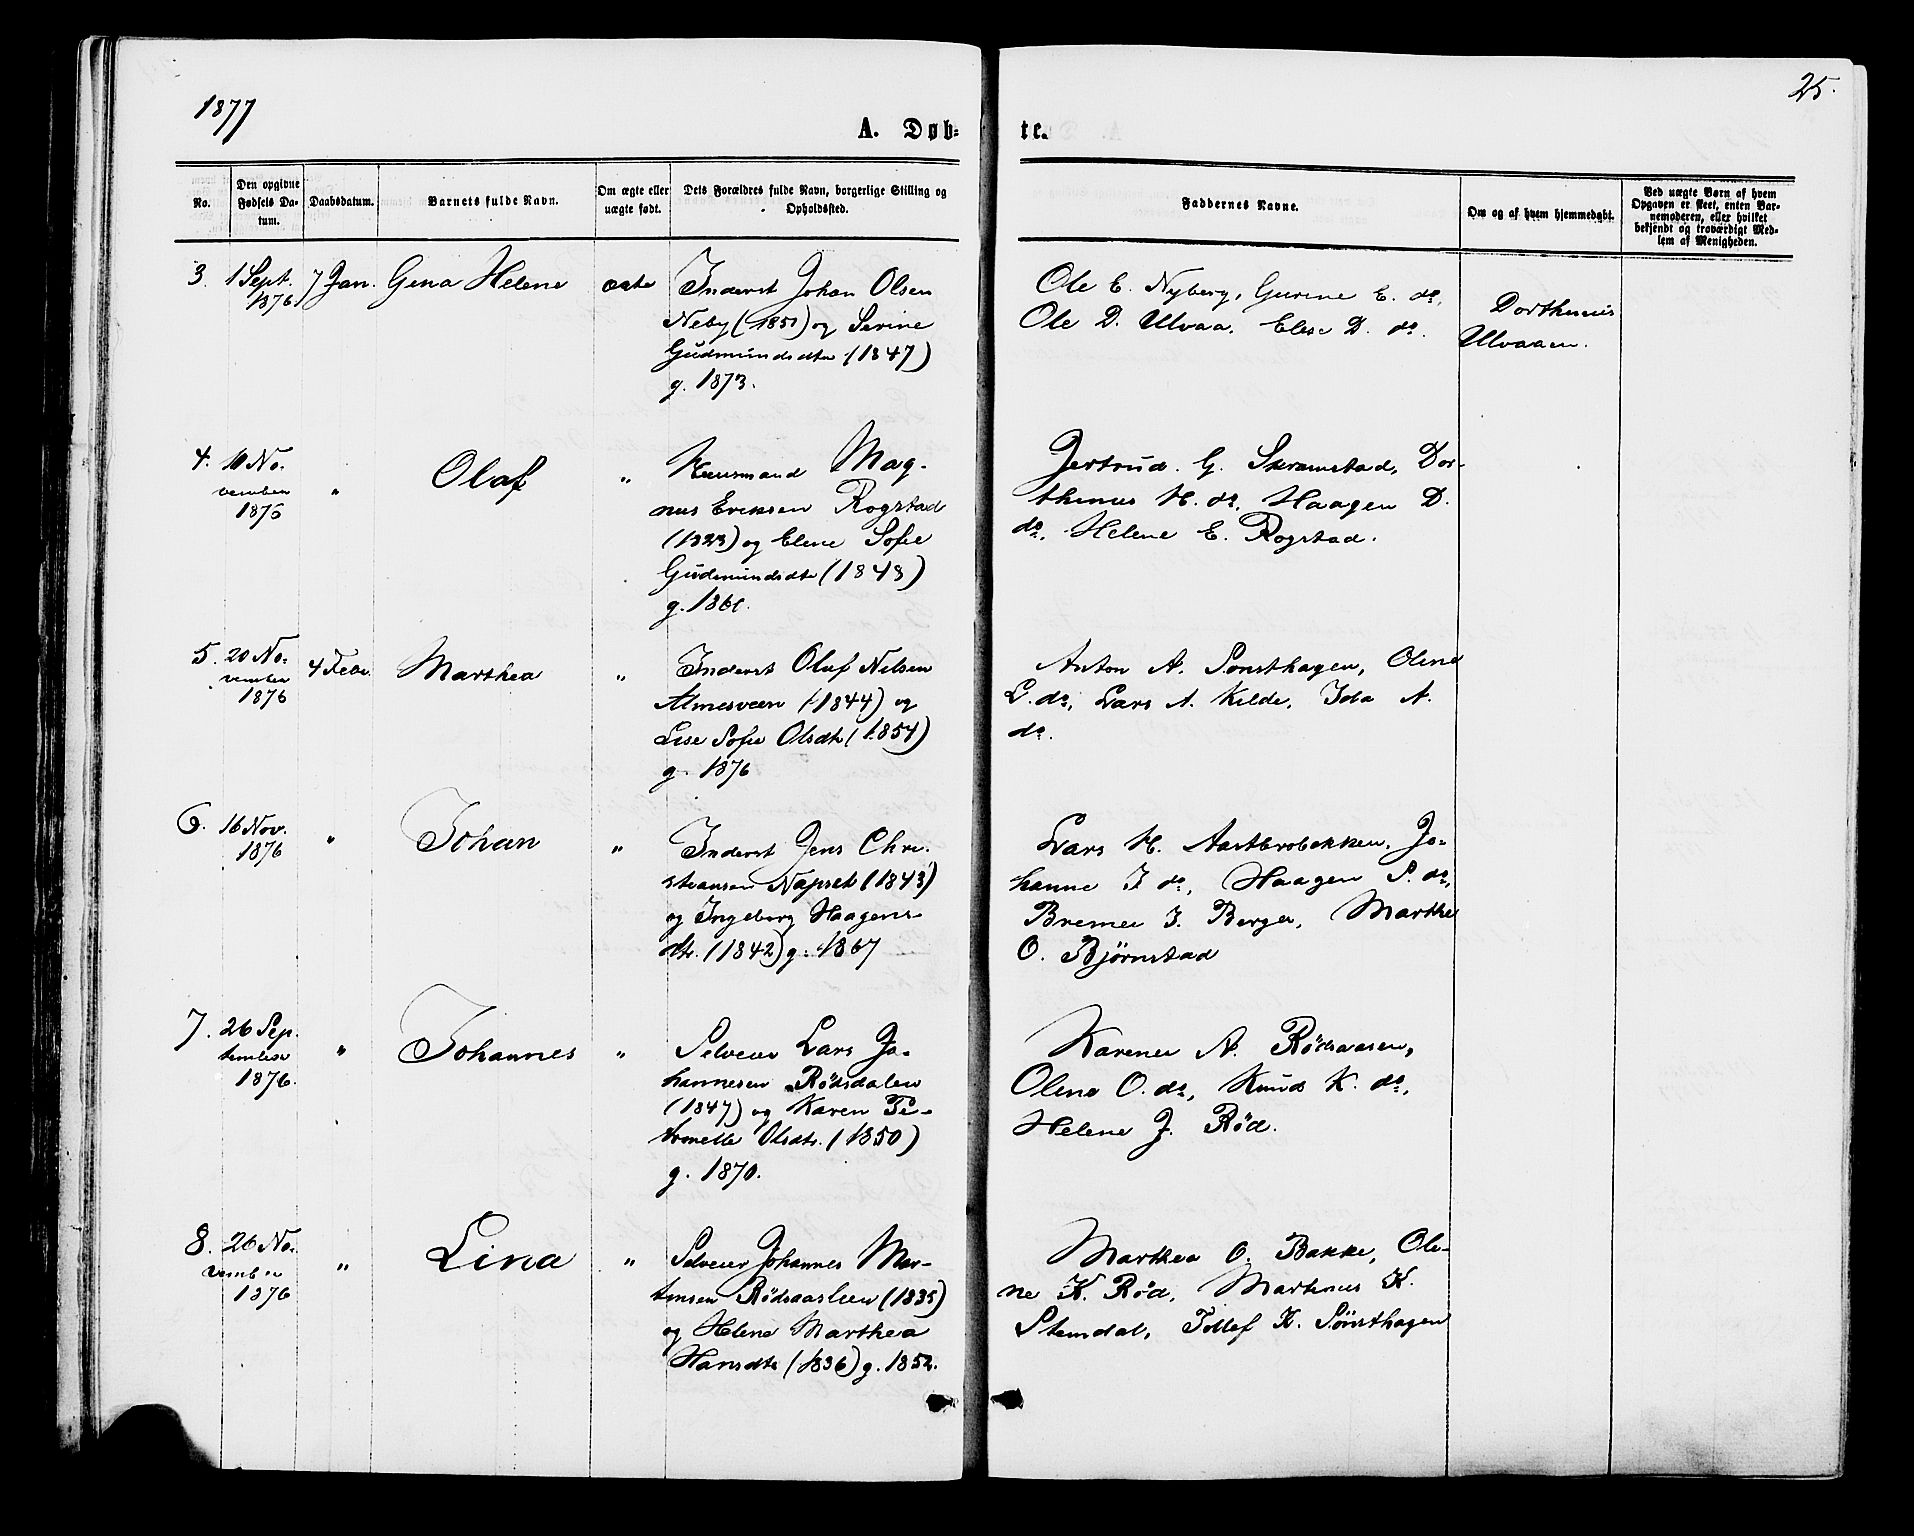 1877
25.
A. Døb-
te.
No.
Den opgivne
Fødsels Da-
tum.
Daabsdatum.
Barnets fulde Navn.
Om ægte eller
uægte født.
Dets Forældres fulde Navn, borgerlige Stilling og
Opholdssted.
Faddernes Navne.
Om og af hvem hjemmedøbt.
Ved uægte Børn af hvem
Opgaven er skeet, enten Bar-
nemoderen, eller hvilket
bekjendt og troværdigt Med-
lem af Menigheden.
3. 1 Sept. 7 Jan. Gina Helene ægte Inderst Johan Olsen
1876
Neby (1851) og Serine
Gudmundsdtr (1847)
g. 1873.
Ole E. Nyberg, Gurine E. do,
Ole D. Ulvaa, Elise D. do.
Dorthenius
Ulvaaen.
4. 10 No- " Olaf " Huusmand Mag-
vember
1876
nus Eriksen Rogstad
(1823) og Elene Sofie
Gudmundsdtr (1843)
g. 1861.
Gertrud G. Skramstad, Dor-
thenus H. do, Haagen D.
do, Helene E. Rogstad.
5. 20 No- 4 Febr. Marthea " Inderst Oluf Nilsen
vember
1876
Almesveen (1844) og
Lise Sofie Olsdtr (1854)
g. 1876
Anton A. Sønsthagen, Oline
L. do, Lars A. Kilde, Ida A.
do.
6. 16 Nov. " Johan " Inderst Jens Chri-
1876
stiansen Napset (1843)
og Ingeborg Haagens-
dtr. (1842) g. 1867
Lars H. Aastbrobakken, Jo-
hanne J do, Haagen P. do,
Bremer J. Berger, Marthe
O. Bjørnstad
7. 26 Sep- " Johannes " Selveier Lars Jo-
tember
1876.
hannesen Rødsdalen
(1847) og Karen Pe-
tronelle Olsdtr. (1850)
g. 1870.
Karene A. Rødsaasen,
Oline O. do, Knud K. do,
Helene J. Rød.
8. 26 No- " Lina " Selveier Johannes Mar-
vember
1876
tinsen Rødsaaslien (1835)
og Helene Marthea
Hansdtr (1836) g. 1852.
Marthea O. Bakke, Oli-
ne K. Rød, Martinus K.
Stemdal, Tollef K. Sønsthagen